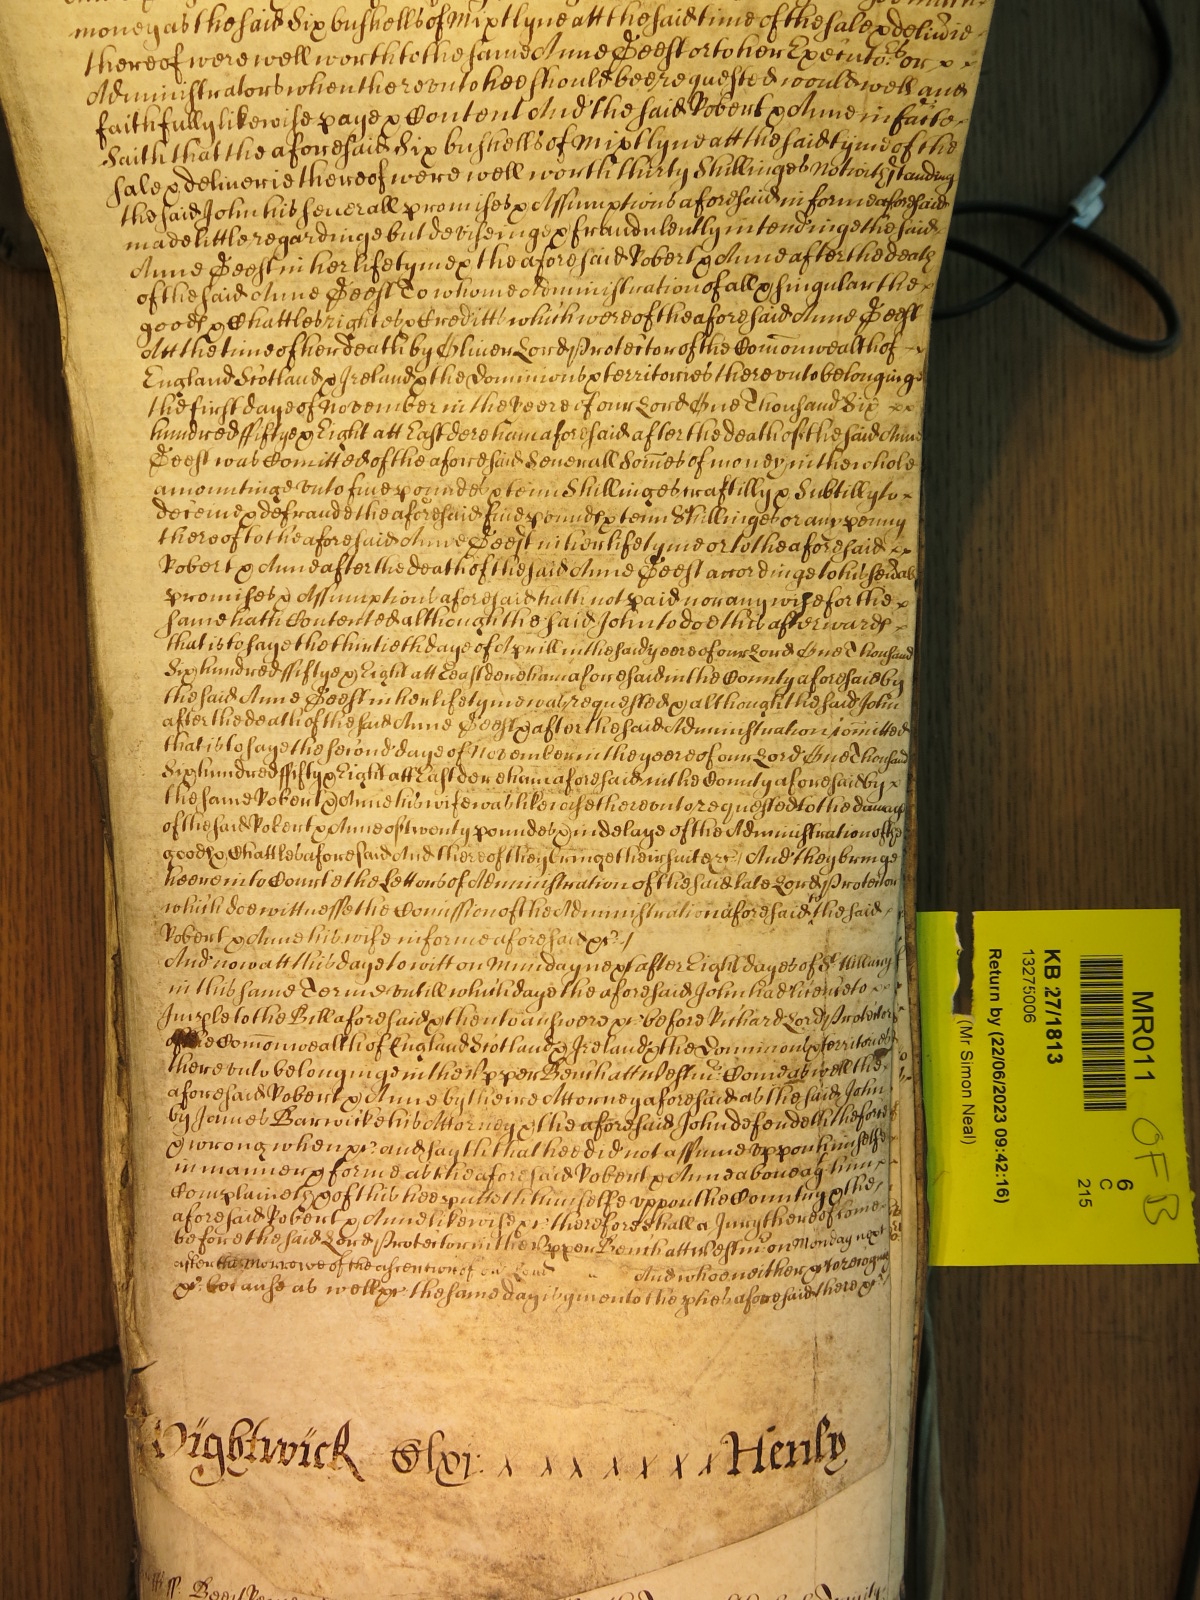 money as the said Six bushells of Mixtlyne att the said time of the sale & deliverie
thereof were well worth to the same Anne Geest or to her Executors or
Administrators when thereunto hee should bee requested would well and
faithfully likewise paye & Content And the said Robert & Anne in facte
saith that the aforesaid Six bushells of Mixtlyne att the said tyme of the
sale & deliverie thereof were well worth thirty Shillinges Notwithstanding
the said John his severall promises & Assumptions aforesaid in forme aforesaid
made little regardinge but deviseinge & fraudulently intendinge the said
Anne Geest in her lifetyme & the aforesaid Robert & Anne after the death
of the said Anne Geest To whome Administration of all & singular the
goods & Chattles rightes & Creditts which were of the aforesaid Anne Geest
Att the time of her death by Oliver Lord Protector of the Comonwealth of
England Scotland & Ireland & the Dominions & territories thereunto belonginge
the first day of November in the Yeere of our Lord One Thousand Six
hundred fiftye & Eight att East dereham aforesaid after the death of the said Anne
Geest was Comitted of the aforesaid Severall Somes of money in the whole
amountinge unto five poundes & tenn Shillinges craftilly & Subtilly to
deceive & defraude the aforesaid five pounds & tenn Shillinges or any penny
thereof to the aforesaid Anne Geest in her lifetyme or to the aforesaid
Robert & Anne after the death of the said Anne Geest accordinge to his severall
promises & Assumptions aforesaid hath not paid nor any wise for the
same hath Contented althought the said John to doe this afterwards
that is to saye the thirtieth daye of Aprill in the said yeere of our Lord One Thousand
Six hundred fiftye & Eight att East dereham aforesaid in the County aforesaid by
the said Anne Geest in her lifetyme was requested & althought the said John
after the death of the said Anne Geest & after the said Administration Comitted
that is to saye the second daye of November in the yeere of our Lord One Thousand
Six hundred fifty & Eight att East dereham aforesaid in the County aforesaid by
the same Robert & Anne his wife was likewise thereunto requested to the damage
of the said Robert & Anne of twenty poundes & in delaye of the Administration of the
goods & Chattles aforesaid And thereof they bringe their suite &c And they bringe
heere into Courte the Letters of Administration of the said late Lord Protector
which doe wittnesse the Comission of the Administration aforesaid to the said
Robert & Anne his wife in forme aforesaid &c
And now att this daye to witt on Munday next after Eight dayes of St Hillary
in this same Terme untill which daye the aforesaid John had licence to
Imple to the Bill aforesaid & then to answere &c before Richard Lord Protector
of the Comonwealth of England Scotland & Ireland & the Dominions & territories
thereunto belonginge in the Upper Bench att Westmr Come as well the
aforesaid Robert & Anne by theire Attorney aforesaid as the said John
by James Barwicke his Attorney & the aforesaid John defendeth the force
& wrong when &c and sayth that hee did not assume uppon himselfe
in manner & forme as the aforesaid Robert & Anne above against him
Complaineth & of this hee putteth himselfe uppon the Country & the
aforesaid Robert & Anne likewise &c therefore shall a Jury thereof come
before the said Lord Protector in the Upper Bench att Westmr on Monday next
after the Morrowe of the ascention of our Lord And whoe neither &c to recognize
&c because as well &c the same day is given to the pties aforesaid there &c
Wightwick Clxi. Henly
MR011
6
C
215
OF B
KB 27/1813
13275006
Return by (22/06/2023 09:42:16)
(Mr Simon Neal)